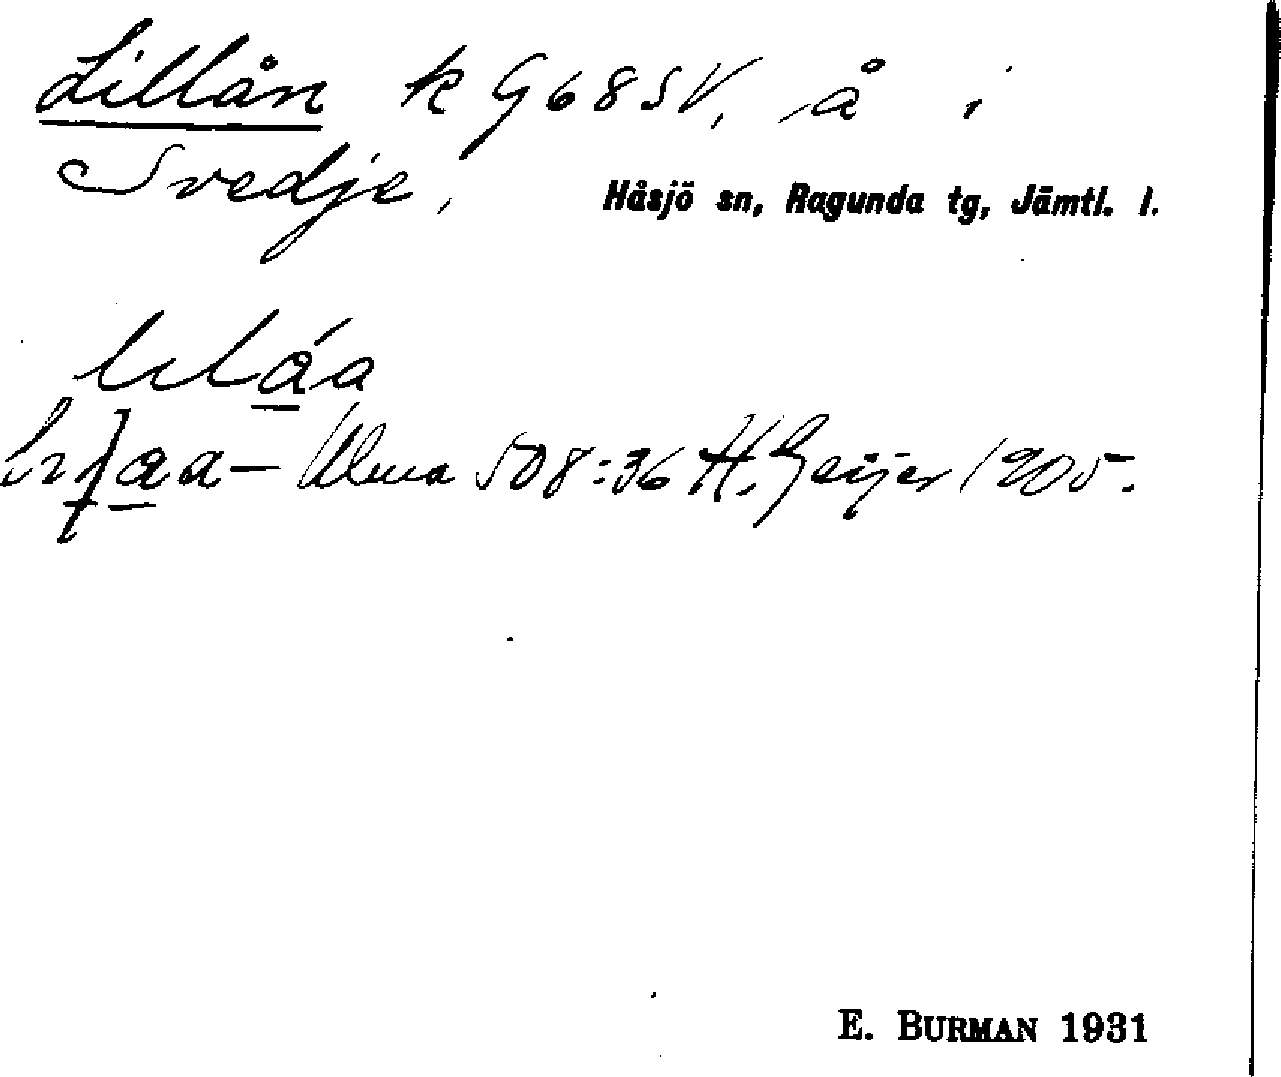 Lillån k G68SV, å i
Svedje, Håsjö sn, Ragunda tg, Jämtl. l.
Ulma 508:36 H. Geijer 1905.
E. BURMAN 1931